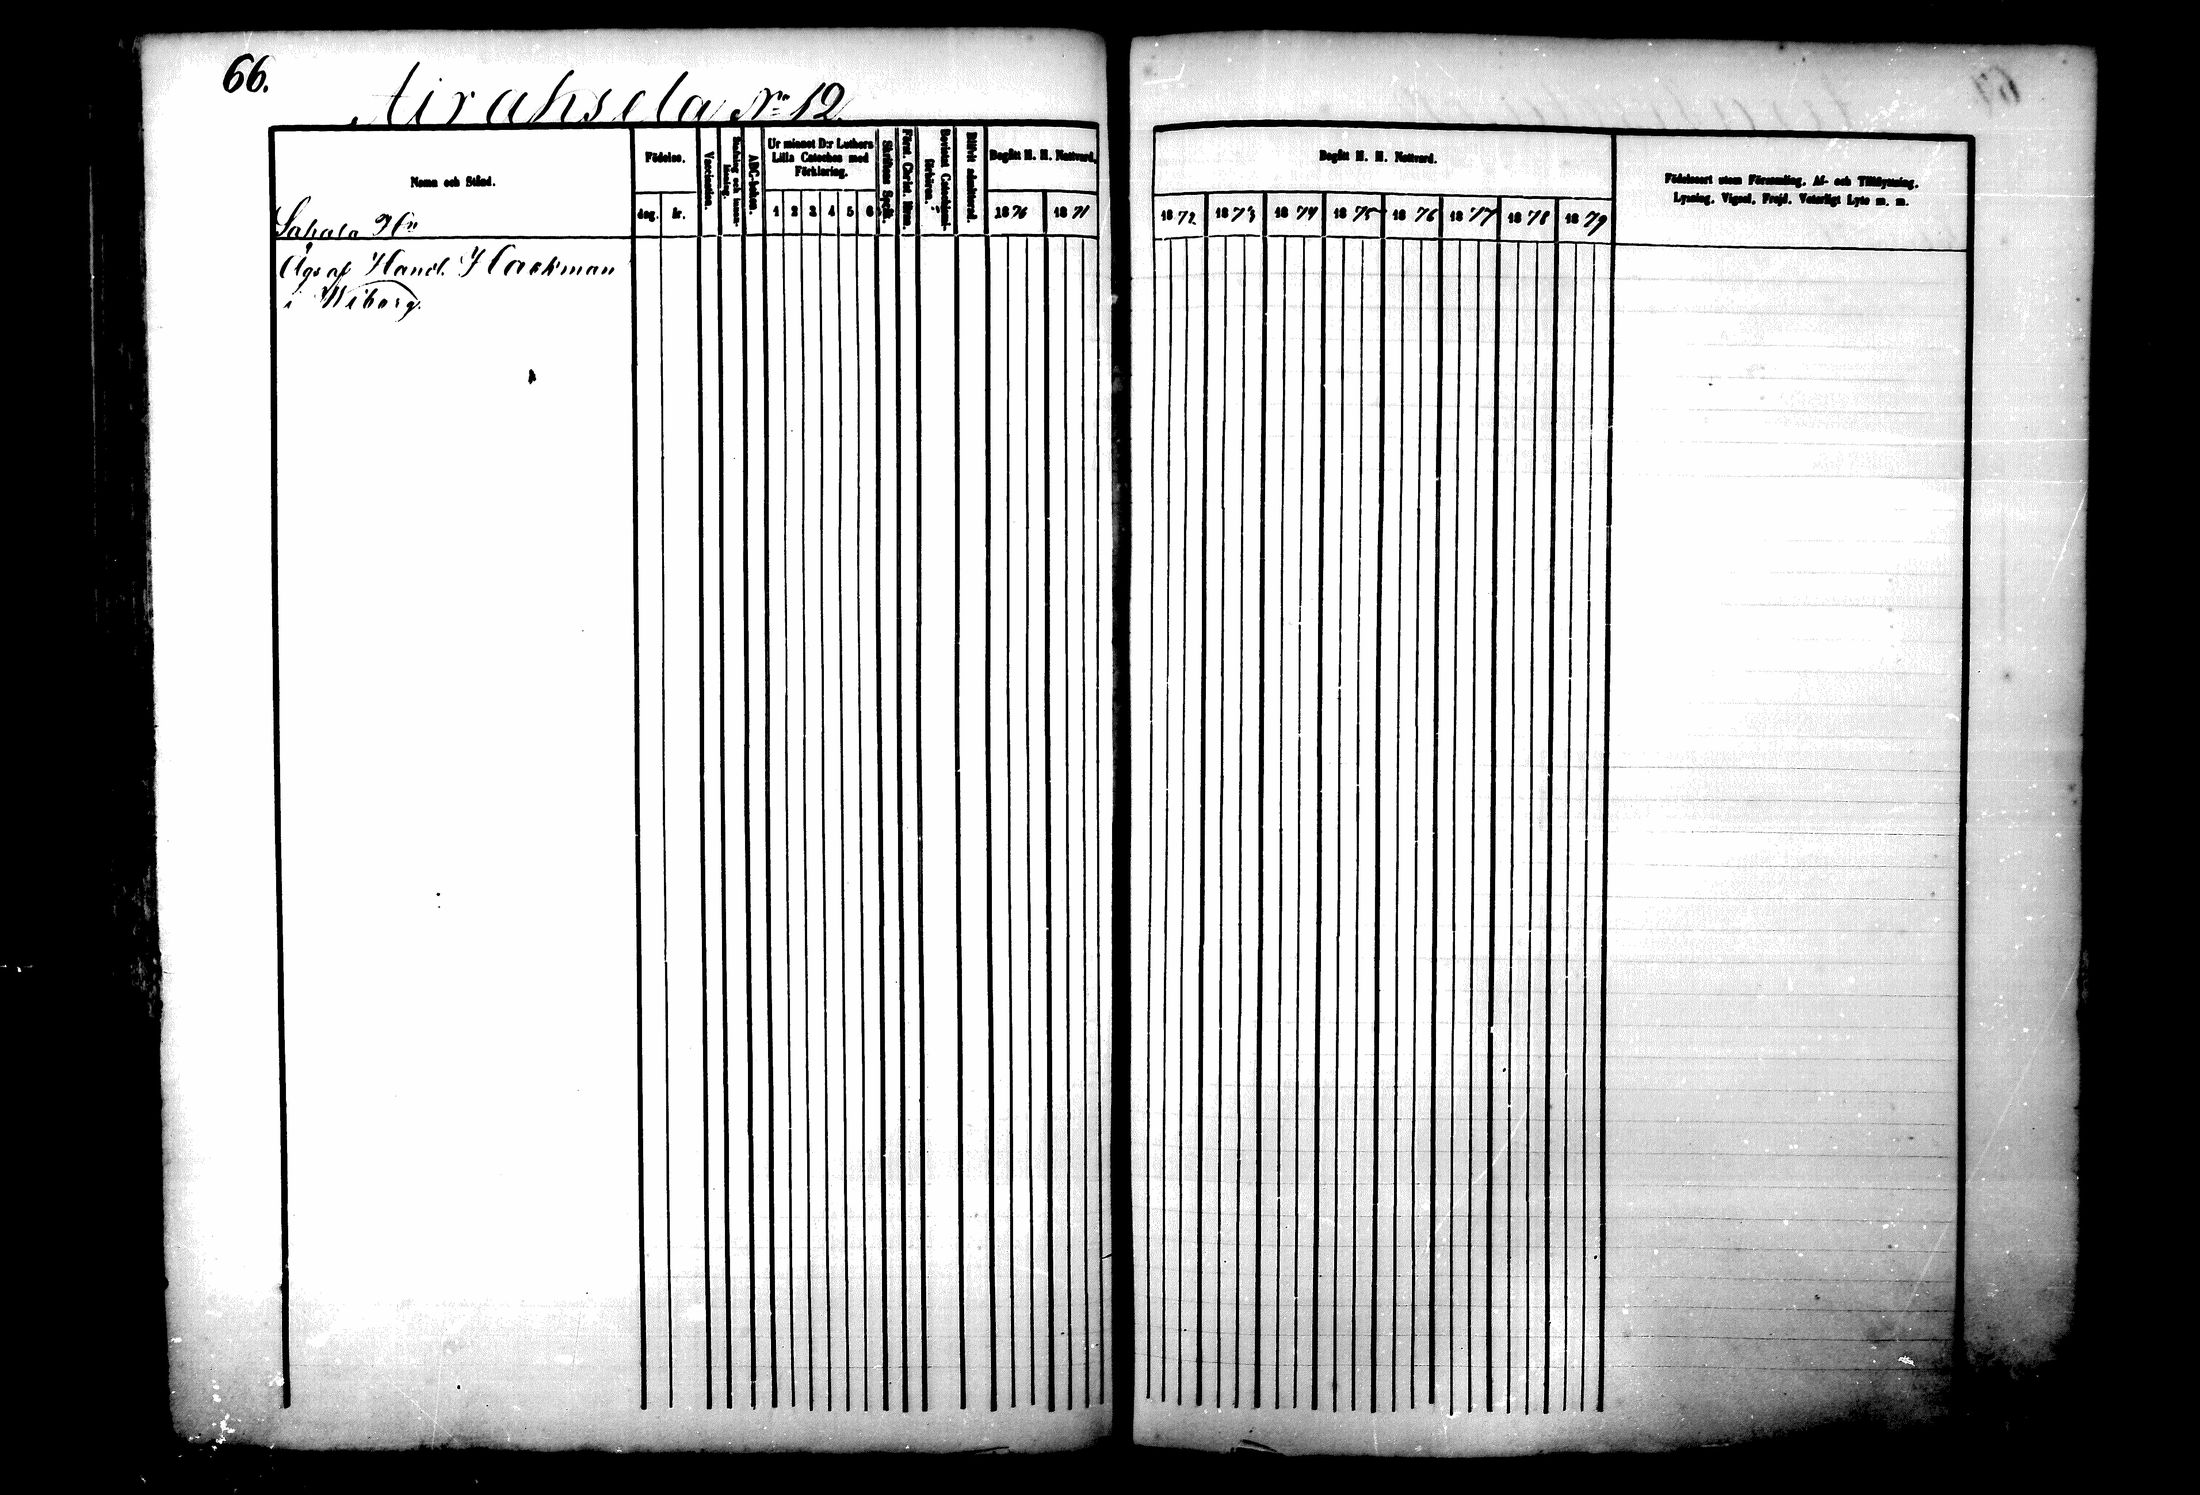 66.
Airaksela No 12.
Namn och Stånd.
Födelse.
dag.
år.
Vaccination.
ABC-boken.
Ur minnet D:r Luthers
Lilla Cateches med
Förklaring.
1 2 3 4 5 6
Skriftens Språk
Först. Christ. läran.
Bevistat Catechismi-
förhören.
Blifvit admitterad.
Begått H. H. Nattvard.
1870 1871
Sahala Hn
Äges af Handl. Hackman
i Wiborg.
Begått H. H. Nattvard.
1872 1873 1874 1875 1876 1877 1878 1879
Födelseort utom Församling, Af- och Tillflyttning,
Lysning, Vigsel, Frejd, Veterligt Lyte m. m.